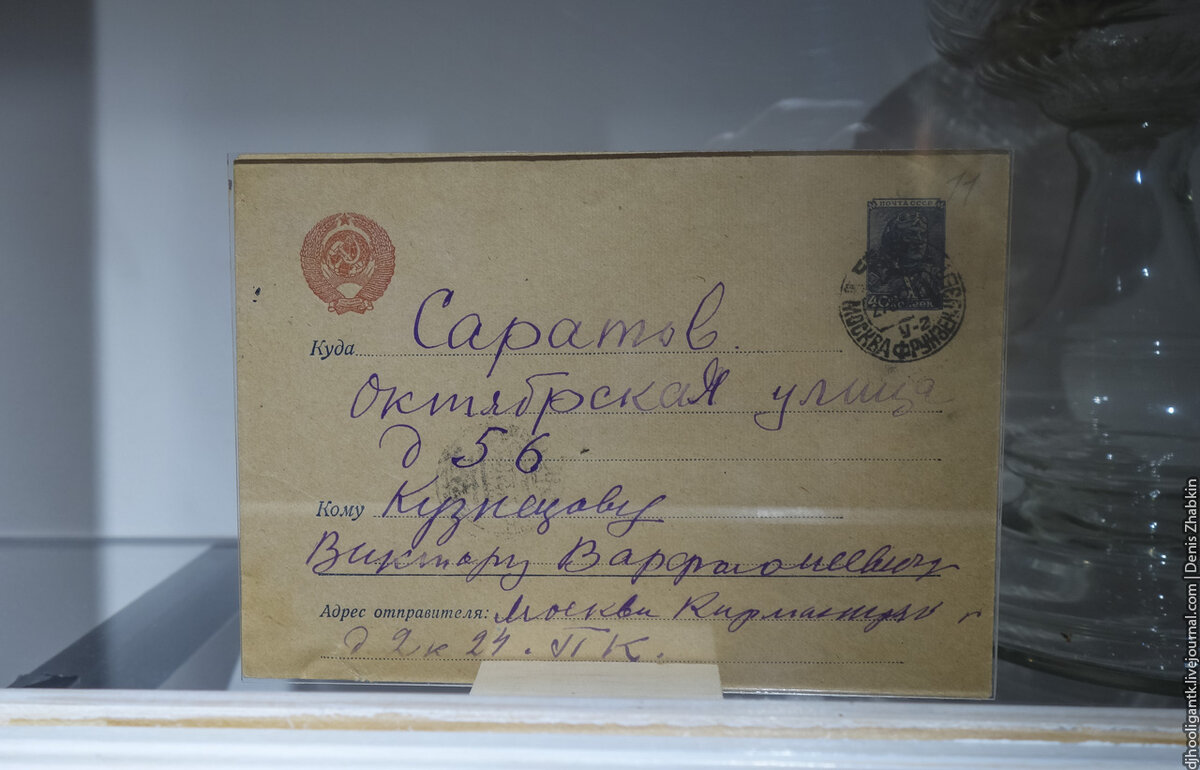 14
ПОЧТА СССР
40 КОПЕЕК
МОСКВА ФРУНЗЕНСК
V-2
Куда Саратов.
Октябрская улица
д 56
Кому Кузнецову
Виктору Варфоломеевичу
Адрес отправителя: Москва
д 2 к 24. П К.
djhooligantk.livejournal.com | Denis Zhabkin